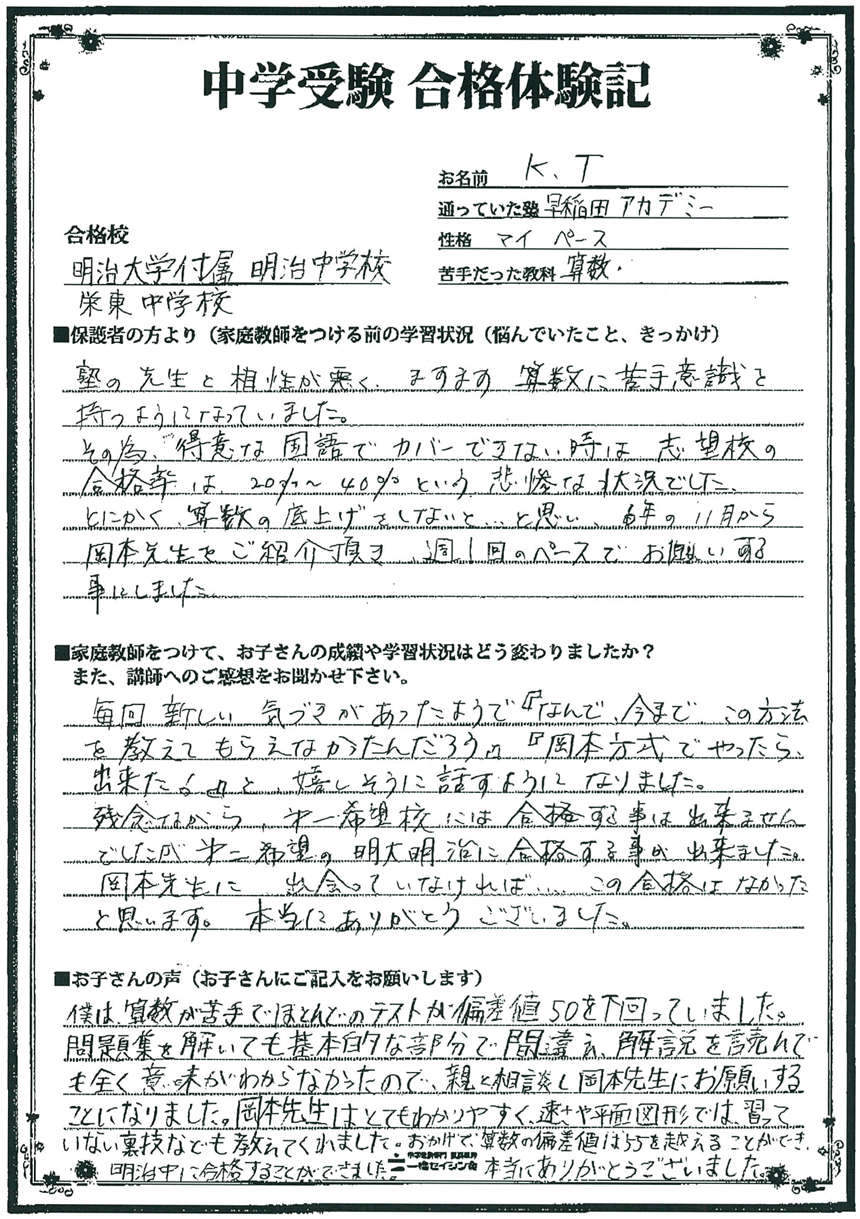 中学受験 合格体験記
お名前 K.T
通っていた塾 早稲田アカデミー
性格 マイペース
苦手だった教科 算数.
合格校
明治大学付属 明治中学校
栄東中学校
■保護者の方より（家庭教師をつける前の学習状況（悩んでいたこと、きっかけ）
塾の先生と相性が悪く、ますます算数に苦手意識を
持つようになっていました。
その為、得意な国語でカバーできない時は志望校の
合格率は、20%〜40%という悲惨な状況でした、
とにかく、算数の底上げをしないと…と思い、6年の11月から
岡本先生をご紹介頂き、週1回のペースでお願いする
事にしました。
■家庭教師をつけて、お子さんの成績や学習状況はどう変わりましたか？
また、講師へのご感想をお聞かせ下さい。
毎回新しい気づきがあったようで『なんで、今までこの方法
を教えてもらえなかったんだろう』『岡本方式でやったら、
出来た！』と、嬉しそうに話すようになりました。
残念ながら、第一希望校には合格する事は出来ません
でしたが第二希望の明大明治に合格する事が出来ました。
岡本先生に出会っていなければ…、この合格はなかった
と思います。本当にありがとうございました。
■お子さんの声（お子さんにご記入をお願いします）
僕は算数が苦手でほとんどのテストが偏差値50を下回っていました。
問題集を解いても基本的な部分で間違え、解説を読んで
も全く意味がわからなかったので、親と相談し岡本先生にお願いする
ことになりました。岡本先生はとてもわかりやすく、速さや平面図形では、習って
いない裏技なども教えてくれました。おかげで、算数の偏差値は55を越えることができ、
明治中に合格することができました。 本当にありがとうございました。
一橋セイシン会